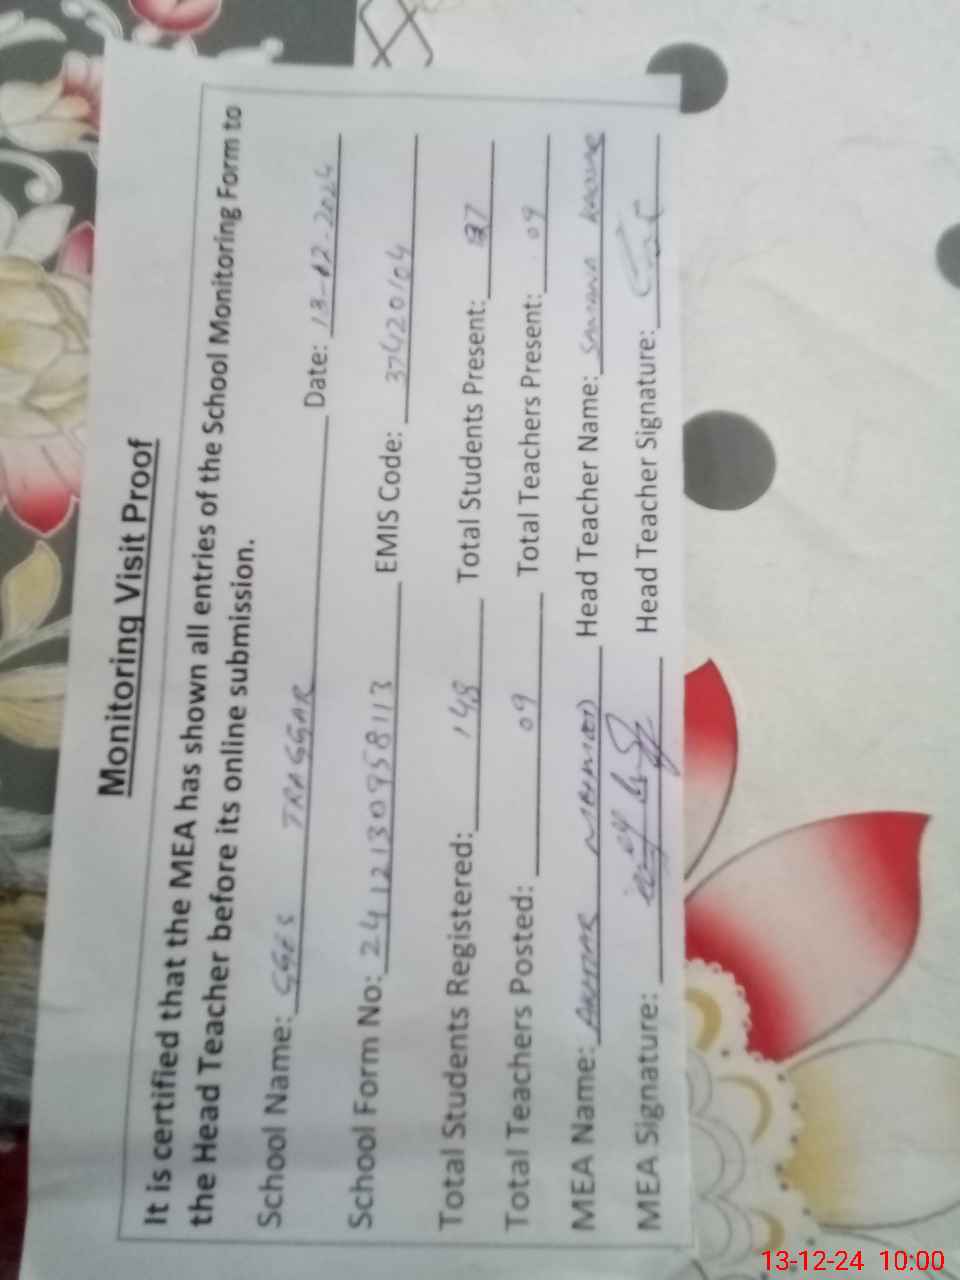 Monitoring Visit Proof
It is certified that the MEA has shown all entries of the School Monitoring Form to
the Head Teacher before its online submission.
School Name: GGES TRAGGAR Date: 13-12-2024
School Form No: 2412130958113 EMIS Code: 37420104
Total Students Registered: 148 Total Students Present:
Total Teachers Posted: 09 Total Teachers Present: 09
MEA Name: Head Teacher Name:
MEA Signature: Head Teacher Signature:
13-12-24 10:00